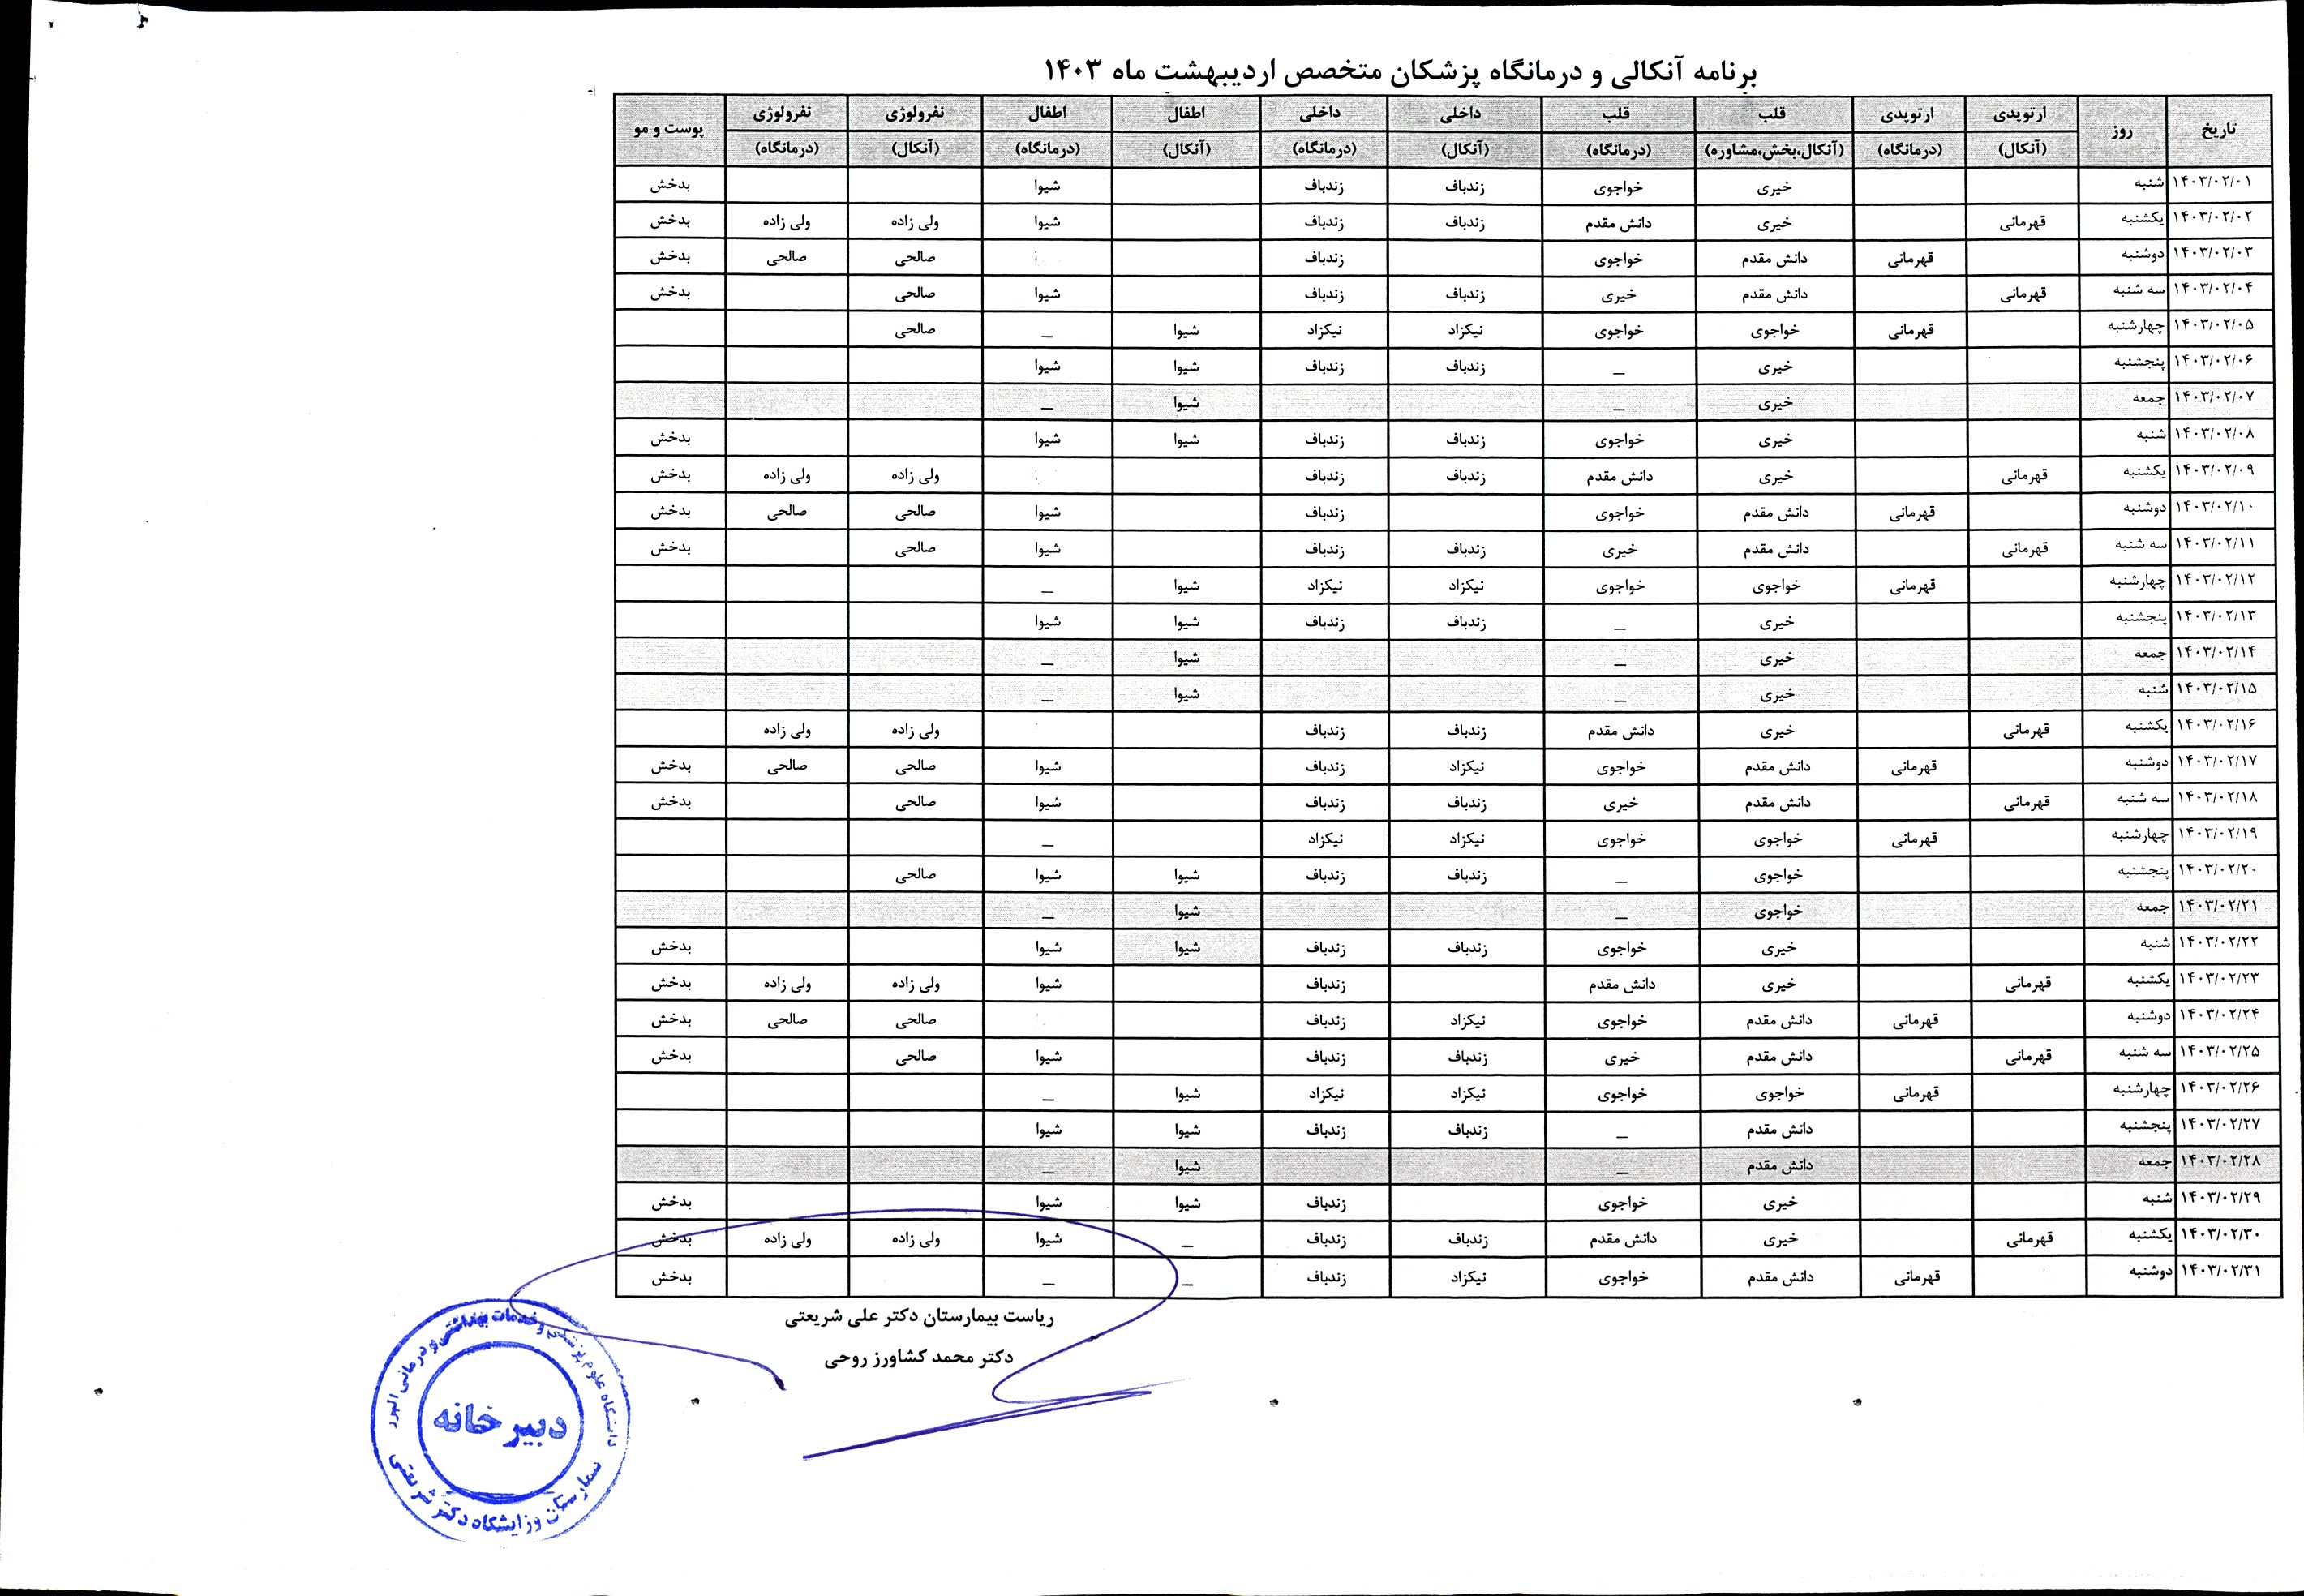 برنامه آنکالی و درمانگاه پزشکان متخصص اردیبهشت ماه ۱۴۰۳
تاریخ روز ارتوپدی ارتوپدی قلب قلب داخلی داخلی اطفال اطفال نفرولوژی نفرولوژی پوست و مو
(آنکال) (درمانگاه) (آنکال،بخش،مشاوره) (درمانگاه) (آنکال) (درمانگاه) (آنکال) (درمانگاه) (آنکال) (درمانگاه)
۱۴۰۳/۰۲/۰۱ شنبه خیری خواجوی زندباف زندباف شیوا بدخش
۱۴۰۳/۰۲/۰۲ یکشنبه قهرمانی خیری دانش مقدم زندباف زندباف شیوا ولی زاده ولی زاده بدخش
۱۴۰۳/۰۲/۰۳ دوشنبه قهرمانی دانش مقدم خواجوی زندباف صالحی صالحی بدخش
۱۴۰۳/۰۲/۰۴ سه شنبه قهرمانی دانش مقدم خیری زندباف زندباف شیوا صالحی بدخش
۱۴۰۳/۰۲/۰۵ چهارشنبه قهرمانی خواجوی خواجوی نیکزاد نیکزاد شیوا _ صالحی
۱۴۰۳/۰۲/۰۶ پنجشنبه خیری _ زندباف زندباف شیوا شیوا
۱۴۰۳/۰۲/۰۷ جمعه خیری _ شیوا _
۱۴۰۳/۰۲/۰۸ شنبه خیری خواجوی زندباف زندباف شیوا شیوا بدخش
۱۴۰۳/۰۲/۰۹ یکشنبه قهرمانی خیری دانش مقدم زندباف زندباف ولی زاده ولی زاده بدخش
۱۴۰۳/۰۲/۱۰ دوشنبه قهرمانی دانش مقدم خواجوی زندباف شیوا صالحی صالحی بدخش
۱۴۰۳/۰۲/۱۱ سه شنبه قهرمانی دانش مقدم خیری زندباف زندباف شیوا صالحی بدخش
۱۴۰۳/۰۲/۱۲ چهارشنبه قهرمانی خواجوی خواجوی نیکزاد نیکزاد شیوا _
۱۴۰۳/۰۲/۱۳ پنجشنبه خیری _ زندباف زندباف شیوا شیوا
۱۴۰۳/۰۲/۱۴ جمعه خیری _ شیوا _
۱۴۰۳/۰۲/۱۵ شنبه خیری _ شیوا _
۱۴۰۳/۰۲/۱۶ یکشنبه قهرمانی خیری دانش مقدم زندباف زندباف ولی زاده ولی زاده
۱۴۰۳/۰۲/۱۷ دوشنبه قهرمانی دانش مقدم خواجوی نیکزاد زندباف شیوا صالحی صالحی بدخش
۱۴۰۳/۰۲/۱۸ سه شنبه قهرمانی دانش مقدم خیری زندباف زندباف شیوا صالحی بدخش
۱۴۰۳/۰۲/۱۹ چهارشنبه قهرمانی خواجوی خواجوی نیکزاد نیکزاد _
۱۴۰۳/۰۲/۲۰ پنجشنبه خواجوی _ زندباف زندباف شیوا شیوا صالحی
۱۴۰۳/۰۲/۲۱ جمعه خواجوی _ شیوا _
۱۴۰۳/۰۲/۲۲ شنبه خیری خواجوی زندباف زندباف شیوا شیوا بدخش
۱۴۰۳/۰۲/۲۳ یکشنبه قهرمانی خیری دانش مقدم زندباف شیوا ولی زاده ولی زاده بدخش
۱۴۰۳/۰۲/۲۴ دوشنبه قهرمانی دانش مقدم خواجوی نیکزاد زندباف صالحی صالحی بدخش
۱۴۰۳/۰۲/۲۵ سه شنبه قهرمانی دانش مقدم خیری زندباف زندباف شیوا صالحی بدخش
۱۴۰۳/۰۲/۲۶ چهارشنبه قهرمانی خواجوی خواجوی نیکزاد نیکزاد شیوا _
۱۴۰۳/۰۲/۲۷ پنجشنبه دانش مقدم _ زندباف زندباف شیوا شیوا
۱۴۰۳/۰۲/۲۸ جمعه دانش مقدم _ شیوا _
۱۴۰۳/۰۲/۲۹ شنبه خیری خواجوی زندباف شیوا شیوا بدخش
۱۴۰۳/۰۲/۳۰ یکشنبه قهرمانی خیری دانش مقدم زندباف زندباف _ شیوا ولی زاده ولی زاده بدخش
۱۴۰۳/۰۲/۳۱ دوشنبه قهرمانی دانش مقدم خواجوی نیکزاد زندباف _ _ بدخش
ریاست بیمارستان دکتر علی شریعتی
دکتر محمد کشاورز روحی
دانشگاه علوم پزشکی و خدمات بهداشتی و درمانی البرز
دبیرخانه
بیمارستان و زایشگاه دکتر شریعتی